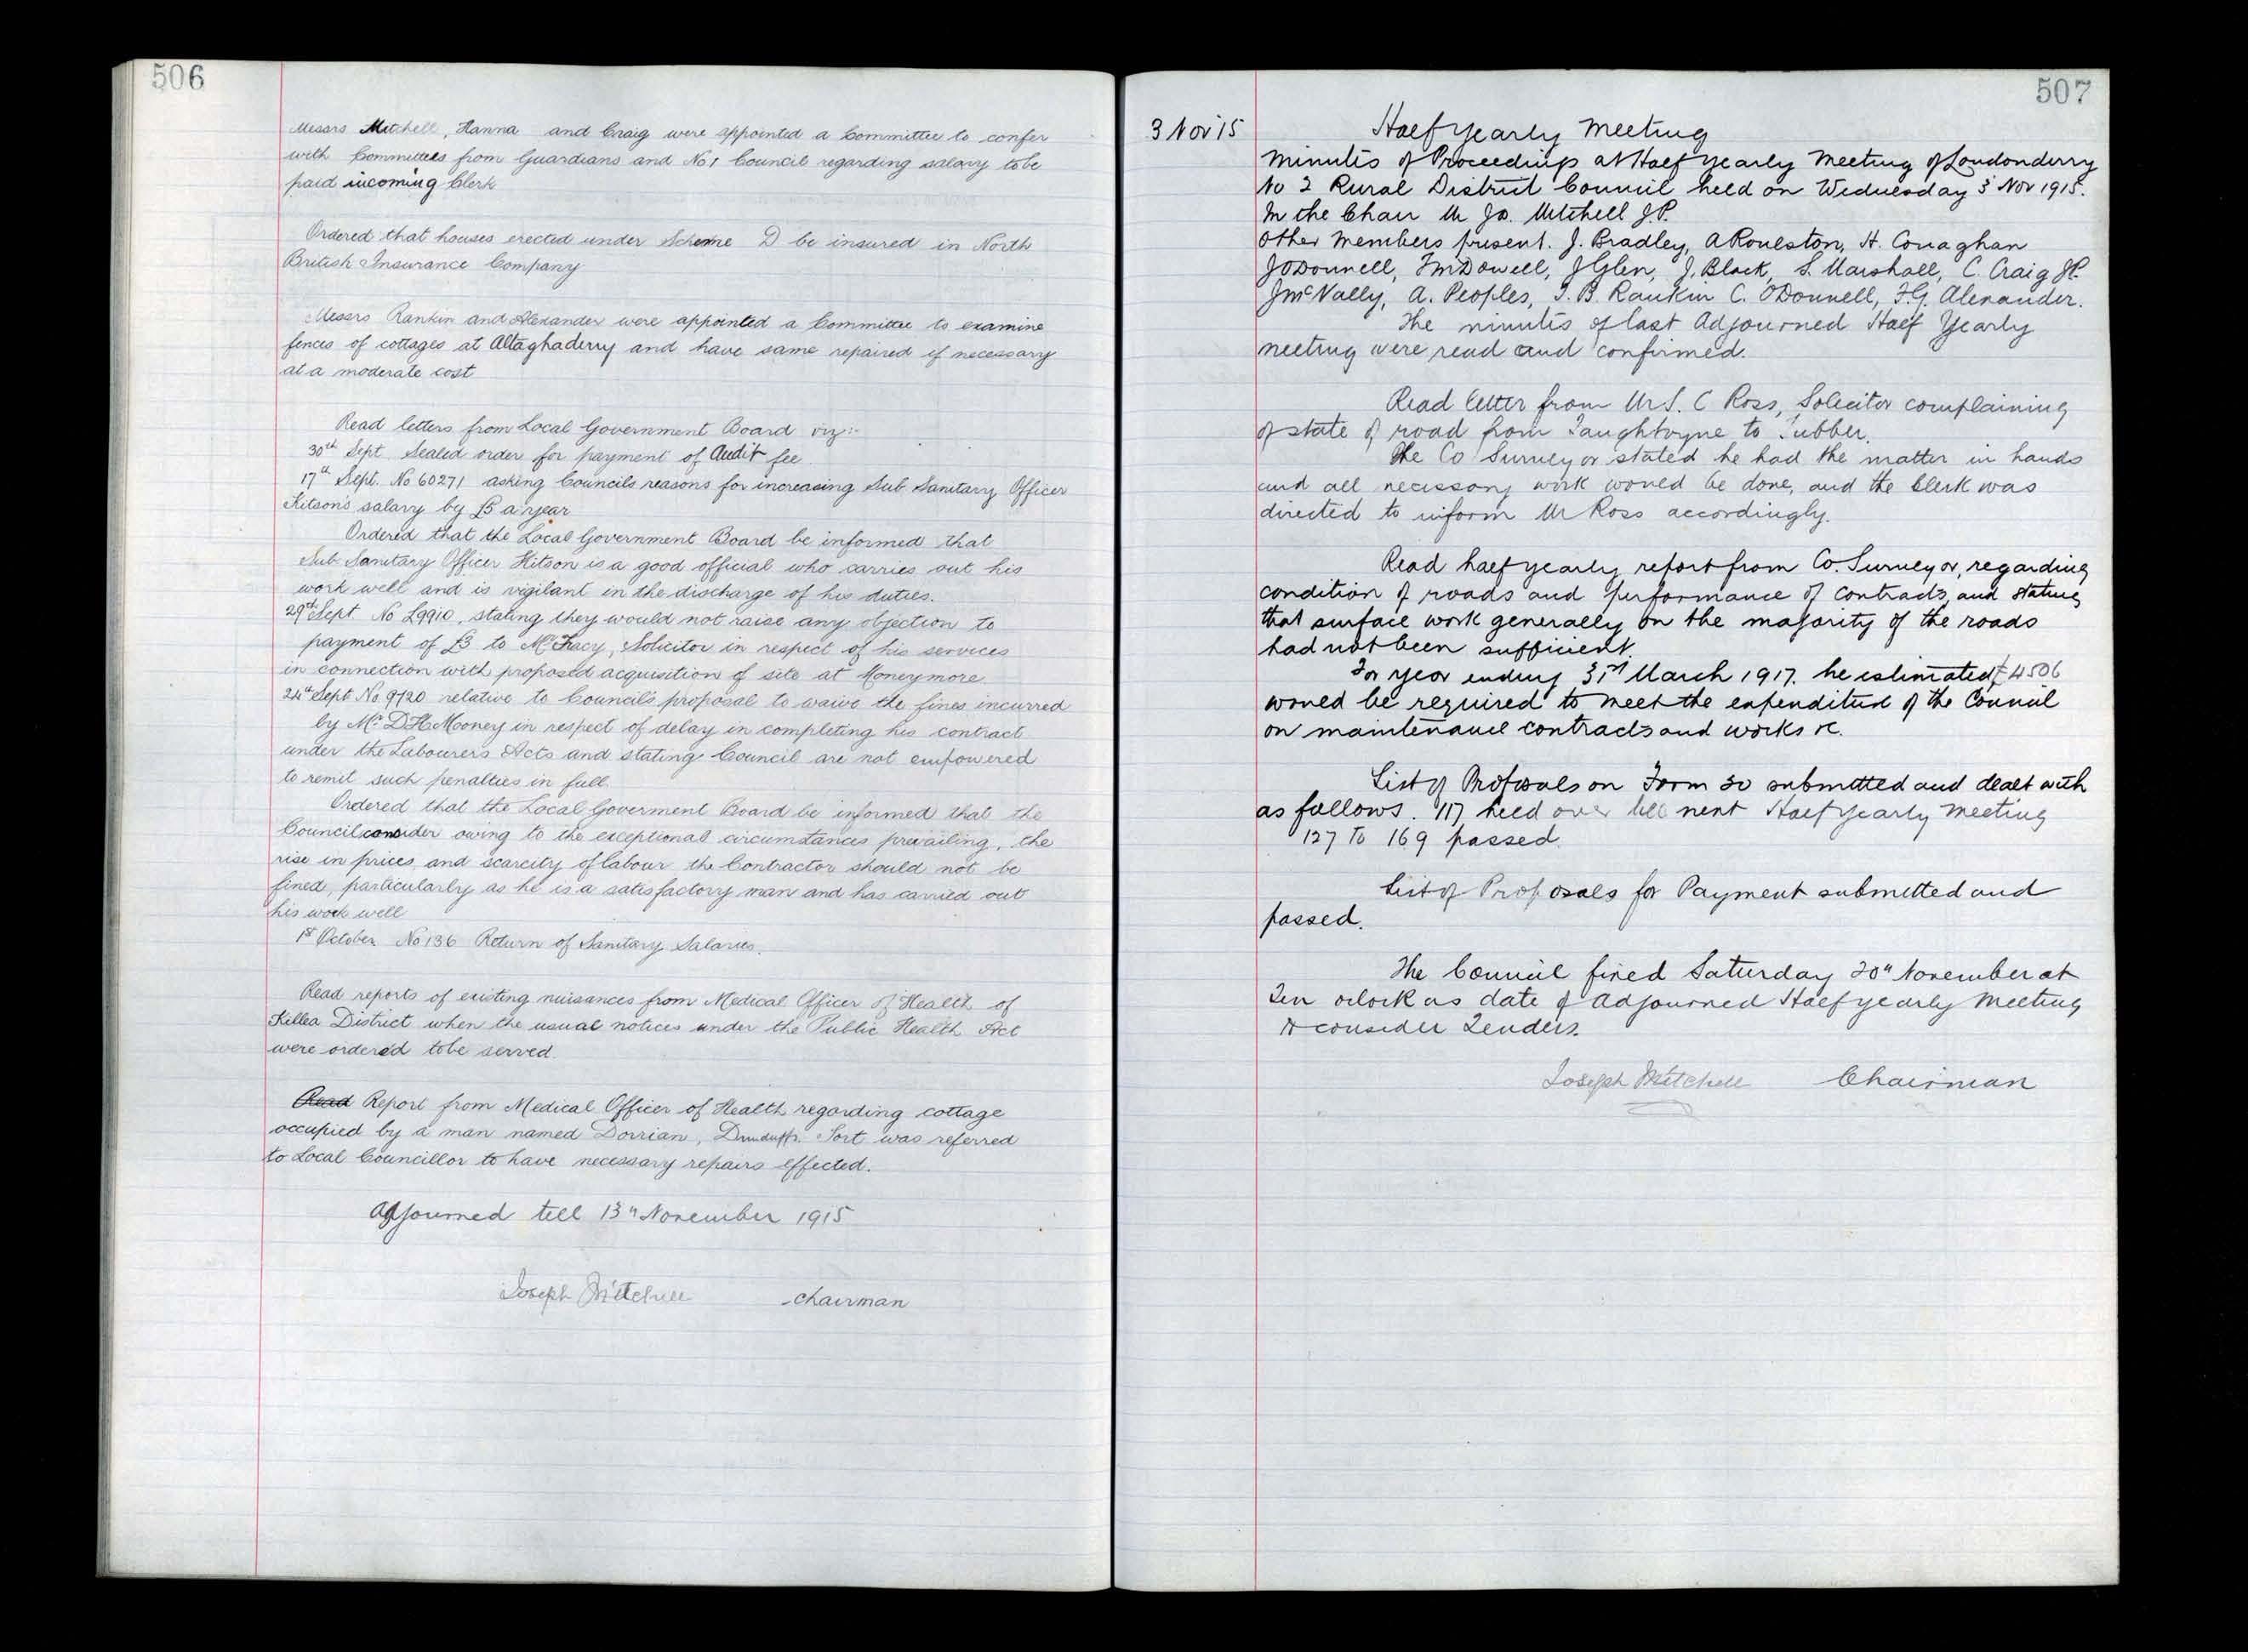 506
Messrs Mitchell, Hanna and Craig were appointed a Committee to confer
with Committees from Guardians and No 1 Council regarding salary to be
paid incoming Clerk
Ordered that houses erected under Scheme D be insured in North
British Insurance Company
Messrs Rankin and Alexander were appointed a Committee to examine
fences of cottages at Altaghaderry and have same repaired if necessary
at a moderate cost
Read letters from Local Government Board viz:-
30th Sept. Sealed order for payment of Audit fee
17th Sept. No 60271 asking Councils reasons for increasing Sub Sanitary Officer
Kitson's salary by £5 a year
Ordered that the Local Government Board be informed that
Sub Sanitary Officer Kitson is a good official who carries out his
work well and is vigilant in the discharge of his duties.
29th Sept. No L9910, stating they would not raise any objection to
payment of £3 to Mr Tracy, Solicitor in respect of his services
in connection with proposed acquisition of site at Moneymore
24th Sept No. 9720 relative to Council's proposal to waive the fines incurred
by Mr D.H. Mooney in respect of delay in completing his contract
under the Labourers Acts and stating Council are not empowered
to remit such penalties in full.
Ordered that the Local Goverment Board be informed that the
Council consider owing to the exceptional circumstances prevailing, the
rise in prices and scarcity of labour the Contractor should not be
fined, particularly as he is a satisfactory man and has carried out
his work well
1st October No 136 Return of Sanitary Salaries.
Read reports of existing nuisances from Medical Officer of Health of
Killea District when the usual notices under the Public Health Act
were ordered to be served.
Read Report from Medical Officer of Health regarding cottage
occupied by a man named Dorrian, Dunduffs Fort was referred
to Local Councillor to have necessary repairs effected.
Adjourned till 13th November 1915
Joseph Mitchell Chairman
507
3 Nov 15
Half Yearly Meeting
Minutes of Proceedings at Half Yearly Meeting of Londonderry
No 2 Rural District Council held on Wednesday 3 Nov 1915.
In the Chair Mr Jos. Mitchell J.P.
Other Members present. J. Bradley, A Roulston, H. Conaghan
J O'Donnell, J McDowell, J Glen, J. Black, S. Marshall, C. Craig J.P.
J McNally, A. Peoples, J. B. Rankin C. O'Donnell, F.G. Alexander.
The minutes of last Adjourned Half Yearly
meeting were read and confirmed.
Read letter from Mr S. C Ross, Solicitor complaining
of state of road from Taughboyne to Tubber.
The Co Surveyor stated he had the matter in hands
and all necessary work would be done, and the Clerk was
directed to inform Mr Ross accordingly.
Read half yearly report from Co. Surveyor, regarding
condition of roads and performance of contracts, and stating
that surface work generally on the majority of the roads
had not been sufficient.
For year ending 31st March 1917. he estimated £4506
would be required to meet the expenditure of the Council
on maintenance contracts and works &c.
List of Proposals on Form 30 submitted and dealt with
as follows. 117 held over till next Half Yearly Meeting
127 to 169 passed
List of Proposals for Payment submitted and
passed.
The Council fixed Saturday 20th November at
Ten oclock as date of Adjourned Half yearly Meeting
to consider Tenders.
Joseph Mitchell Chairman